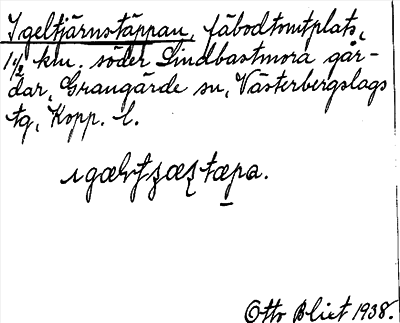 Igeltjärnstäppan, fäbodtomtplats,
1 1/2 km. söder Lindbastmora går-
dar, Grangärde sn, Västerbergslags
tg, Kopp. l.
Otto Blixt 1938.